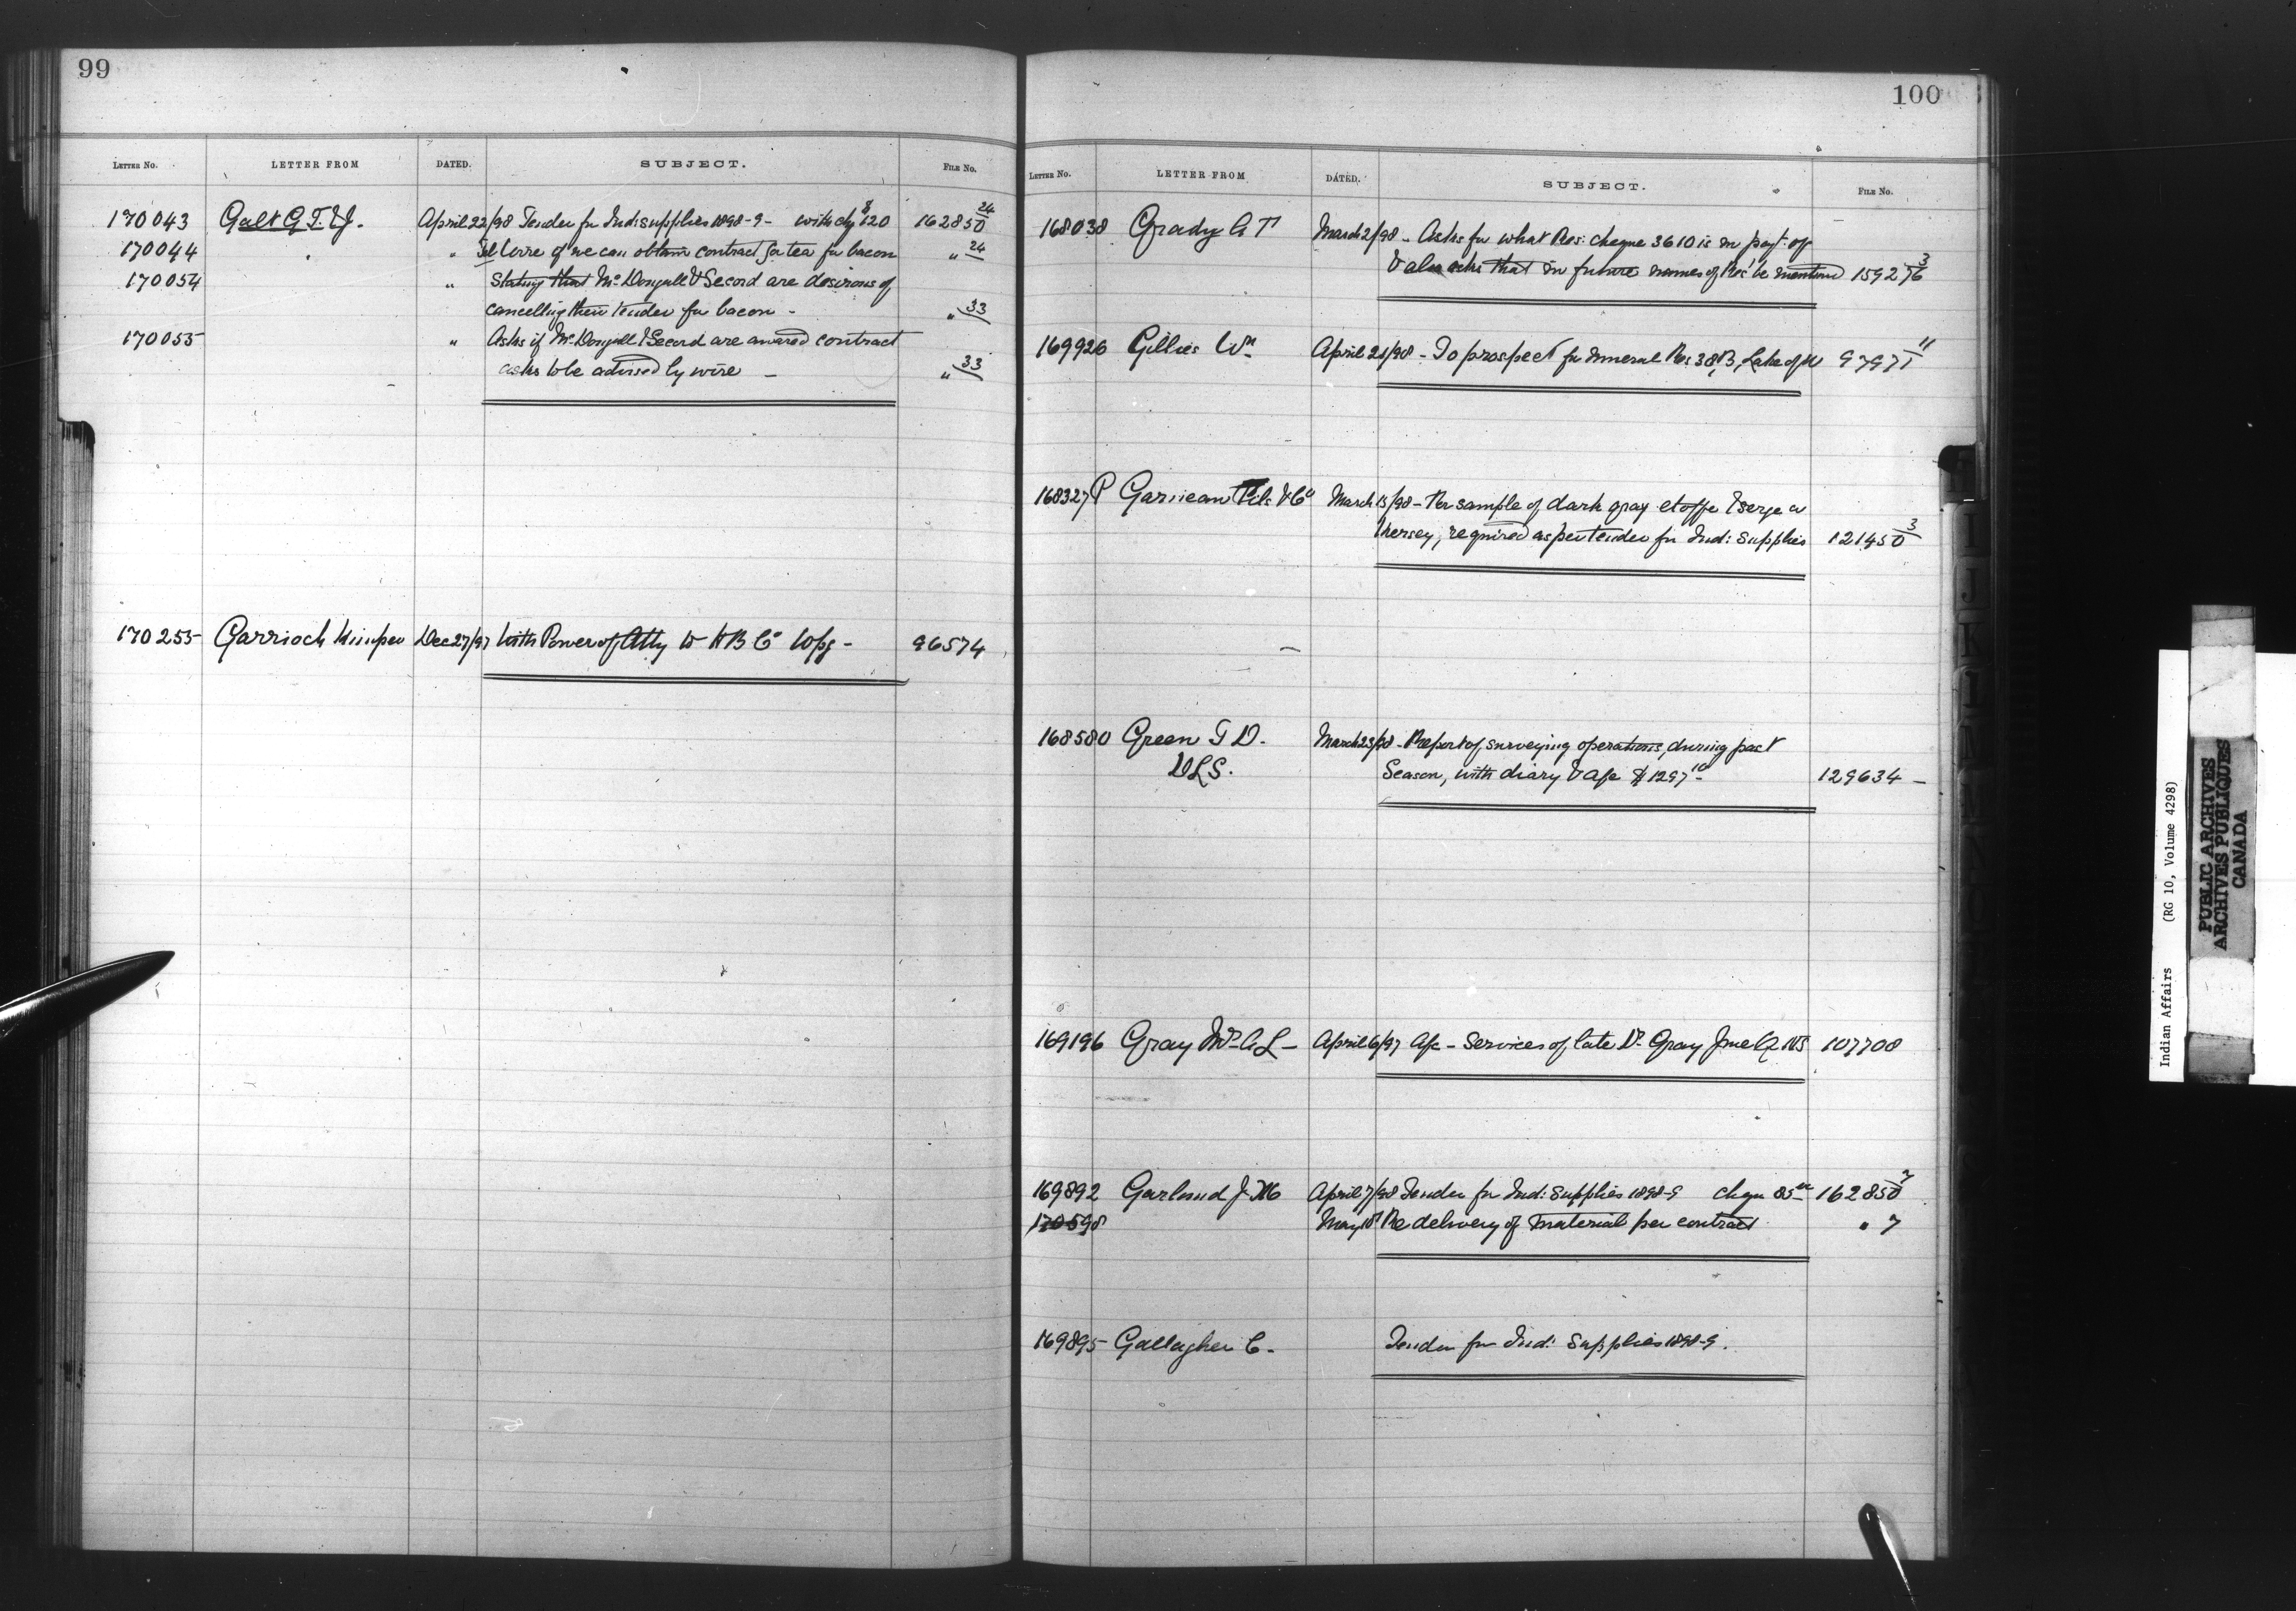 99
LETTER NO. LETTER FROM DATED. SUBJECT. FILE NO.
170043 Galt G. F. & J. April 22/98 Tender for Ind: supplies 1898-9 - with chq 120 162850 24
170044 " Tel Wire if we can obtain contract for tea for bacon " 24
170054 " Stating that McDougall & Secord are desirous of
cancelling their tender for bacon - " 33
170055 " Asks if McDougall & Secord are awared contract
asks to be advised by wire - " 33
170255 Garrioch Dec 27/97 With Power of Atty to H B Co Wpg - 96574
100
LETTER NO. LETTER FROM DATED. SUBJECT. FILE NO.
168038 Grady A T March 2/98 - Asks for what Res: cheque 3610 is in payt: of
& also asks that in future names of Res be mentiond 159276 3
169926 Gillies Wm April 21/98 - To prospect for mineral Res 38B, Lake of W 97971 11
168327 P Garneau Fils & Co March 15/98 - Per sample of dark gray etoffe & serge or
Kersey, required as per tender for Ind: Supplies 121450 3
168580 Green T D. March 23/98 - Report of surveying operations, during past
DLS. Season, with diary & a/c $1297 10 129634 -
169196 Gray Mrs A L - April 6/97 A/c - Services of late Dr Gray NS 107708
169892 Garland J M April 7/98 Tender for Ind: Supplies 1898-9 cheque 85 162850 7
170598 May 10 Re delivery of material per contract " 7
169895 Gallagher C. Tender for Ind: Supplies 1898-9.
Indian Affairs (RG 10, Volume 4298)
PUBLIC ARCHIVES
ARCHIVES PUBLIQUES
CANADA